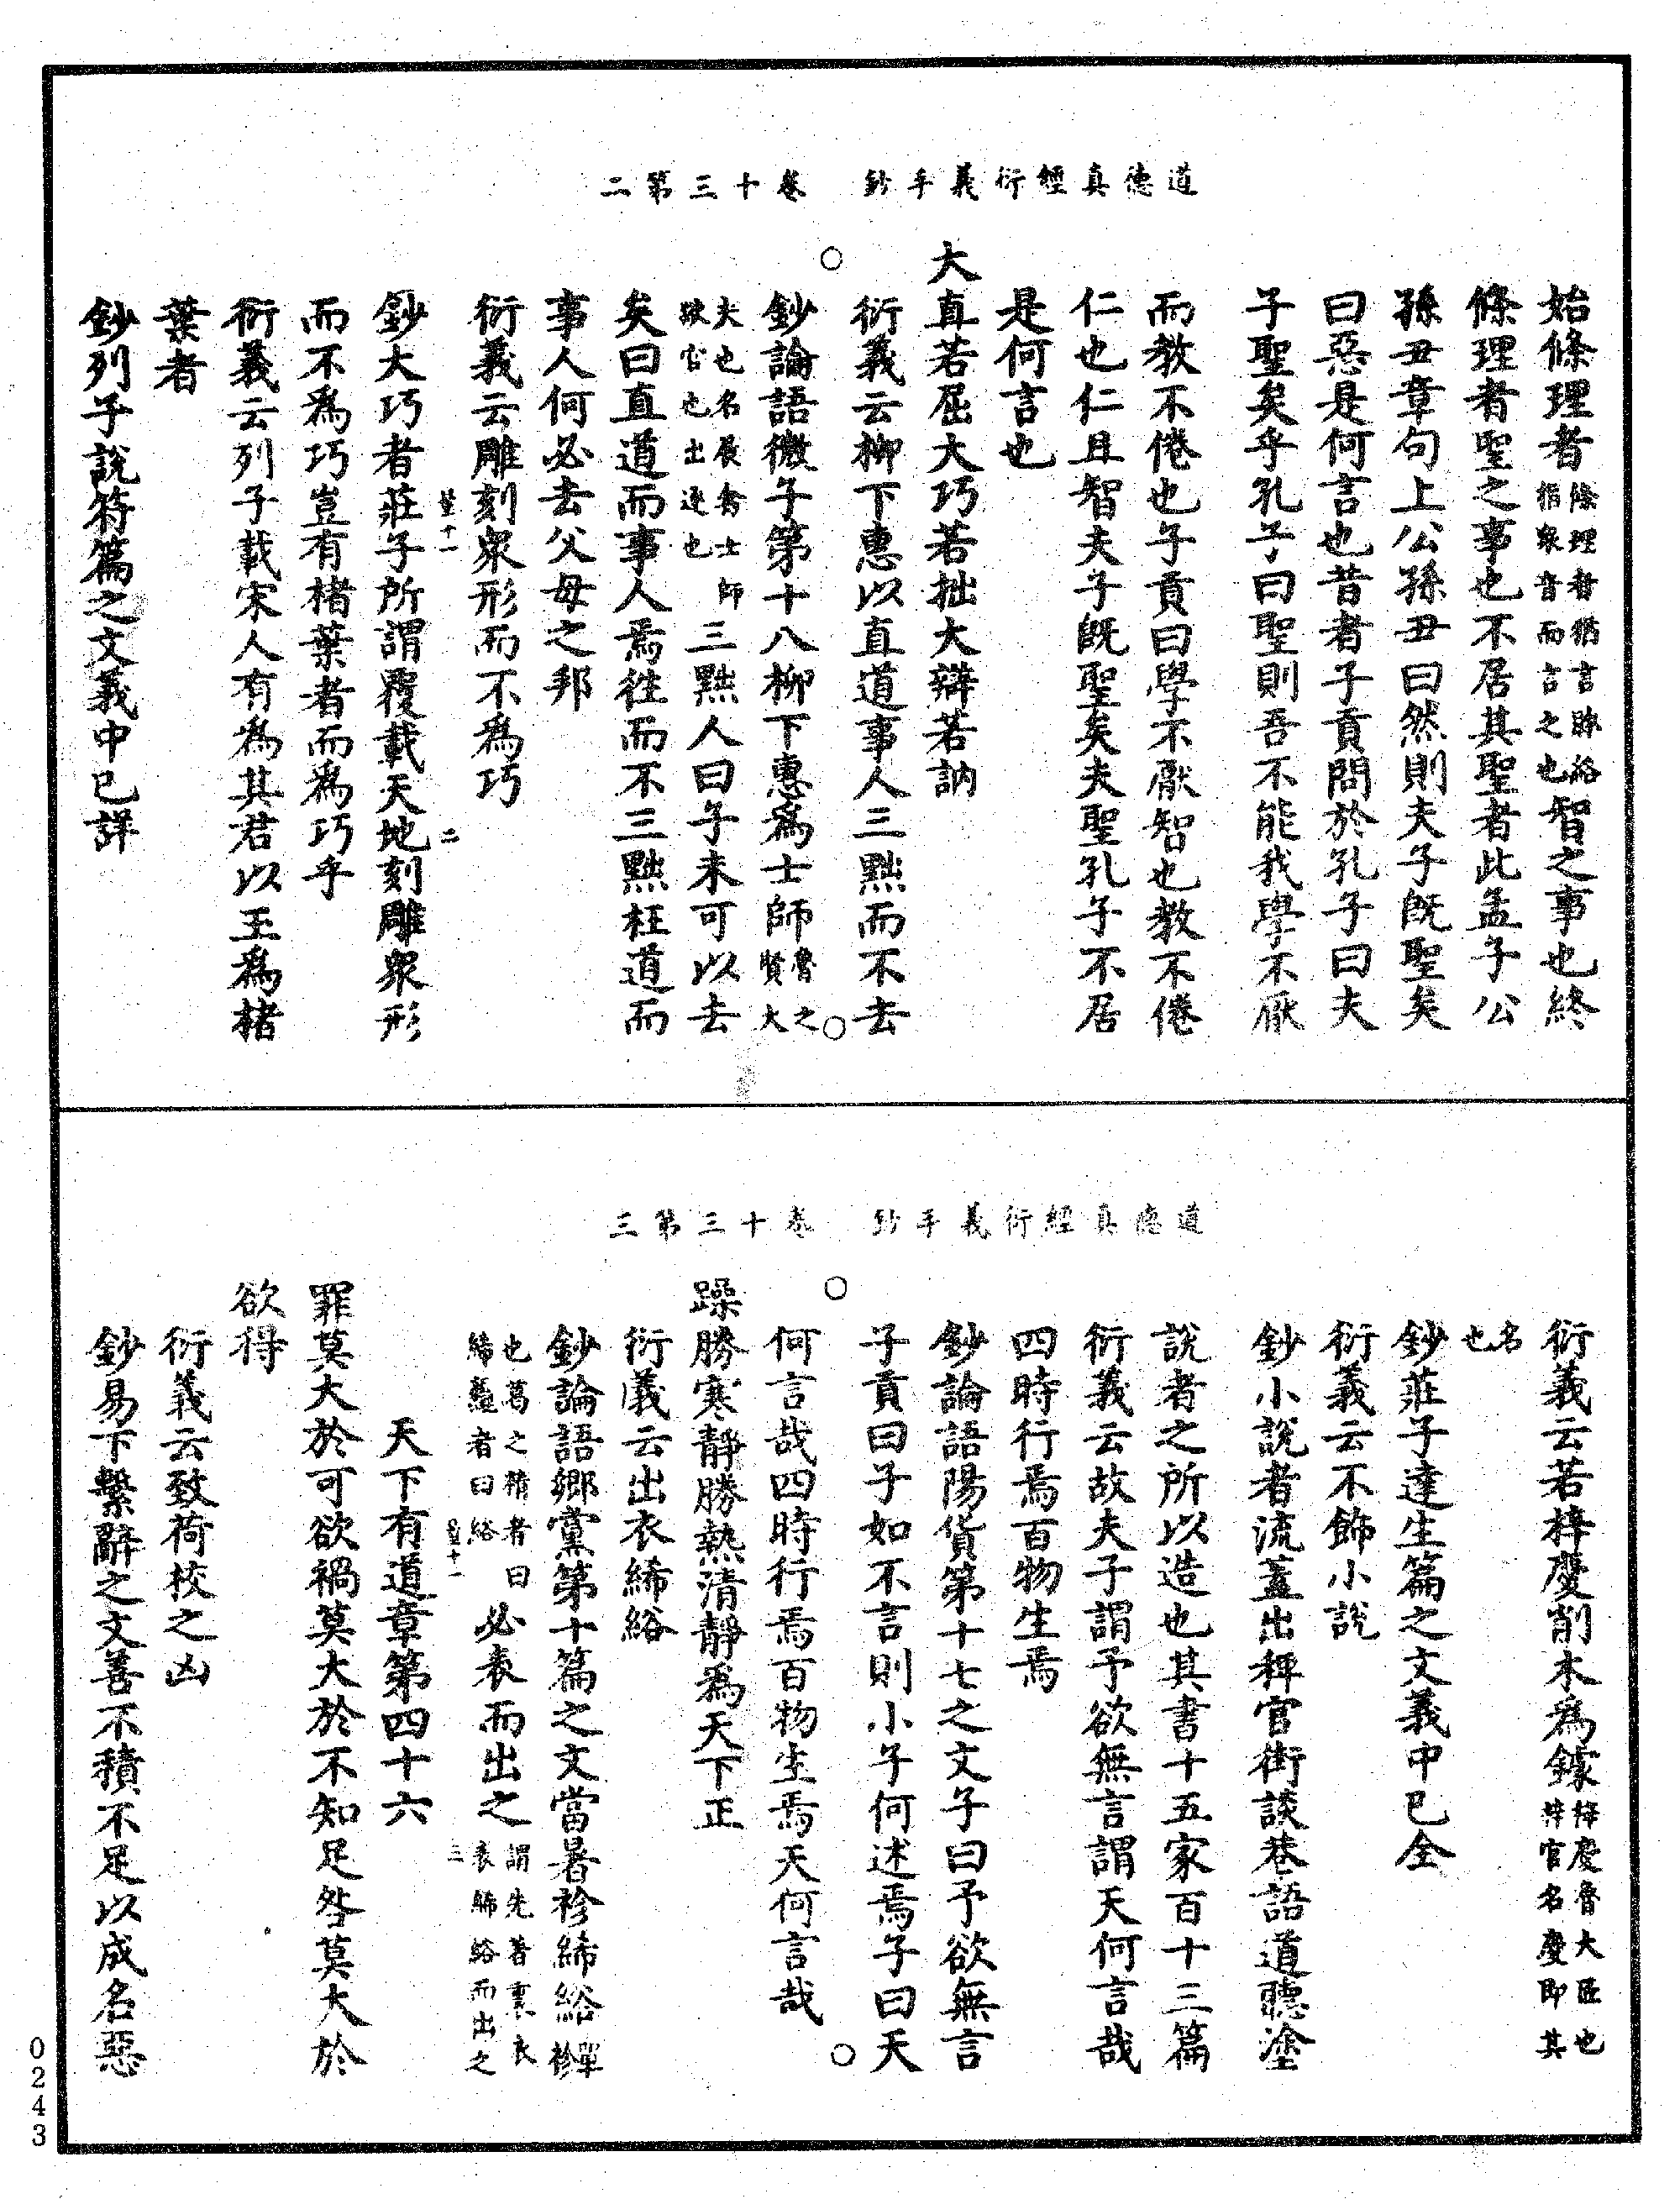 道德真經衍義手鈔　卷十三第二
始條理者條理者猶言脉絡指衆音而言之也智之事也終
條理者聖之事也不居其聖者此孟子公
孫丑章句上公孫丑曰然則夫子旣聖矣
曰惡是何言也昔者子貢問於孔子曰夫
子聖矣乎孔子曰聖則吾不能我學不厭
而教不倦也子貢曰學不厭智也教不倦
仁也仁且智夫子旣聖矣夫聖孔子不居
是何言也
大直若屈大巧若拙大辯若訥
衍義云柳下惠以直道事人三黜而不去
鈔論語微子第十八柳下惠爲士師魯之賢大
夫也名展禽士師獄官也出逐也三黜人曰子未可以去
矣曰直道而事人焉徃而不三黜枉道而
事人何必去父母之邦
衍義云雕刻衆形而不爲巧
鈔大巧者莊子所謂覆載天地刻雕衆形
而不爲巧豈有楮葉者而爲巧乎
衍義云列子載宋人有爲其君以玉爲楮
葉者
鈔列子說符篇之文義中已詳
道德真經衍義手鈔　卷十三第三
衍義云若梓慶削木爲鐻梓慶魯大匠也梓官名慶即其
名也
鈔莊子達生篇之文義中已全
衍義云不飾小說
鈔小說者流蓋出稗官街談巷語道聽塗
說者之所以造也其書十五家百十三篇
衍義云故夫子謂予欲無言謂天何言哉
四時行焉百物生焉
鈔論語陽貨第十七之文子曰予欲無言
子貢曰子如不言則小子何述焉子曰天
何言哉四時行焉百物生焉天何言哉
躁勝寒靜勝熱清靜爲天下正
衍義云出衣絺綌
鈔論語鄉黨第十篇之文當暑袗絺綌袗單
也葛之精者曰絺麤者曰綌必表而出之謂先著裏衣表絺綌而出之
天下有道章第四十六
罪莫大於可欲禍莫大於不知足咎莫大於
欲得
衍義云致荷校之凶
鈔易下繫辭之文善不積不足以成名惡
0243